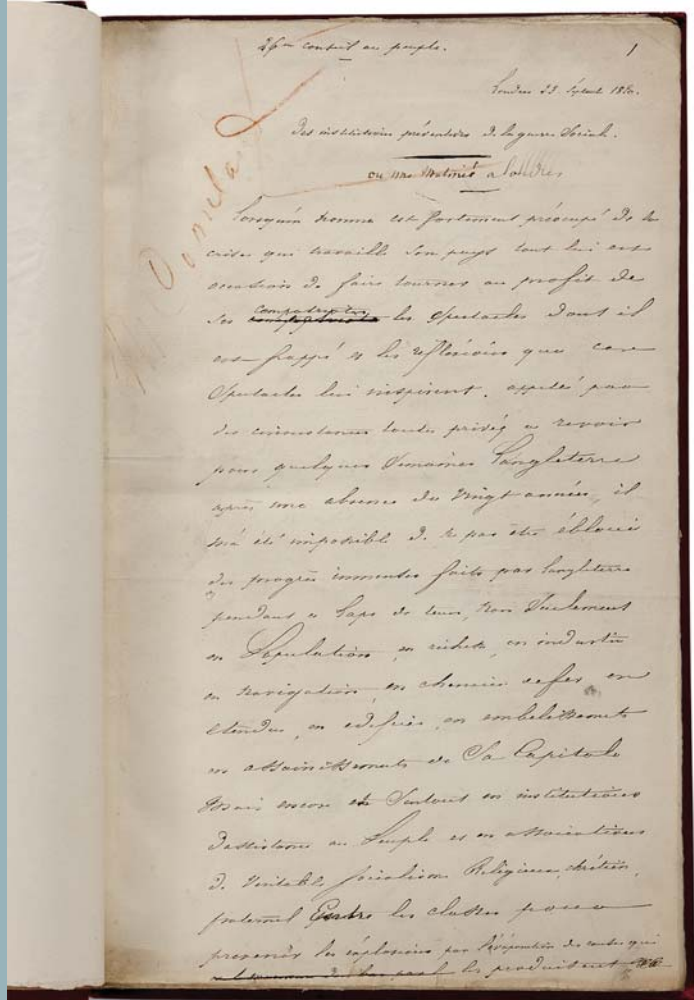 26em conseil au peuple.
1
Londres 23 Septembre 1850.
Des institutions préventives de la guerre Sociale.
ou une matinée a Londres
Lorsquun homme est fortement préocupé de la
crises qui travaille son pays tout lui est
occasion de faire tourner au profit de
ses compatriotes les Spectacles dont il
est frappé et les réflexions que ces
Spectacles lui inspirent. appelé par
des circonstances toutes privés a revoir
pour quelques Semaines Langleterre
après une absence de vingt années, il
m'a été impossible de ne pas être ébloui
des progrès immenses faits par Langleterre
pendant ce laps de tems, non Seulement
en Population, en richesse, en industrie
en navigation, en chemins de fer, en
étendue, en edifices, en embelissements
en assainissements de Sa Capitale
Mais encore et Surtout en institutions
Dassistance au Peuple et en associations
de Veritable Socialisme Religieux, chrétien,
fraternel Entre les classes pour
prevenir les explosions par l'évaporation des causes qui
les produisent